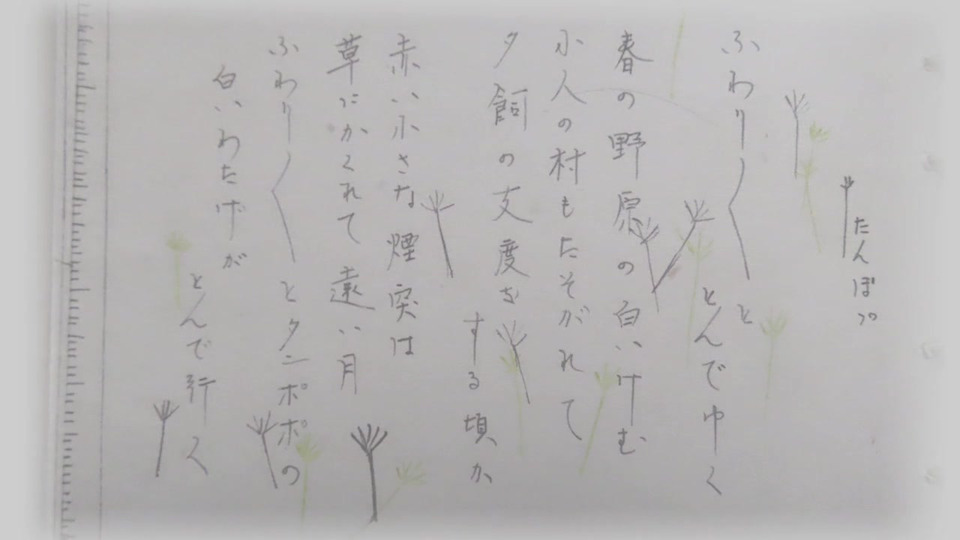 たんぽぽ
ふわり〳〵と
とんでゆく
春の野原の白いけむ
小人の村もたそがれて
夕飼の支度を
する頃か
赤い小さな煙突は
草にかくれて遠い月
ふわり〳〵とタンポポの
白いわたげが
とんで行く